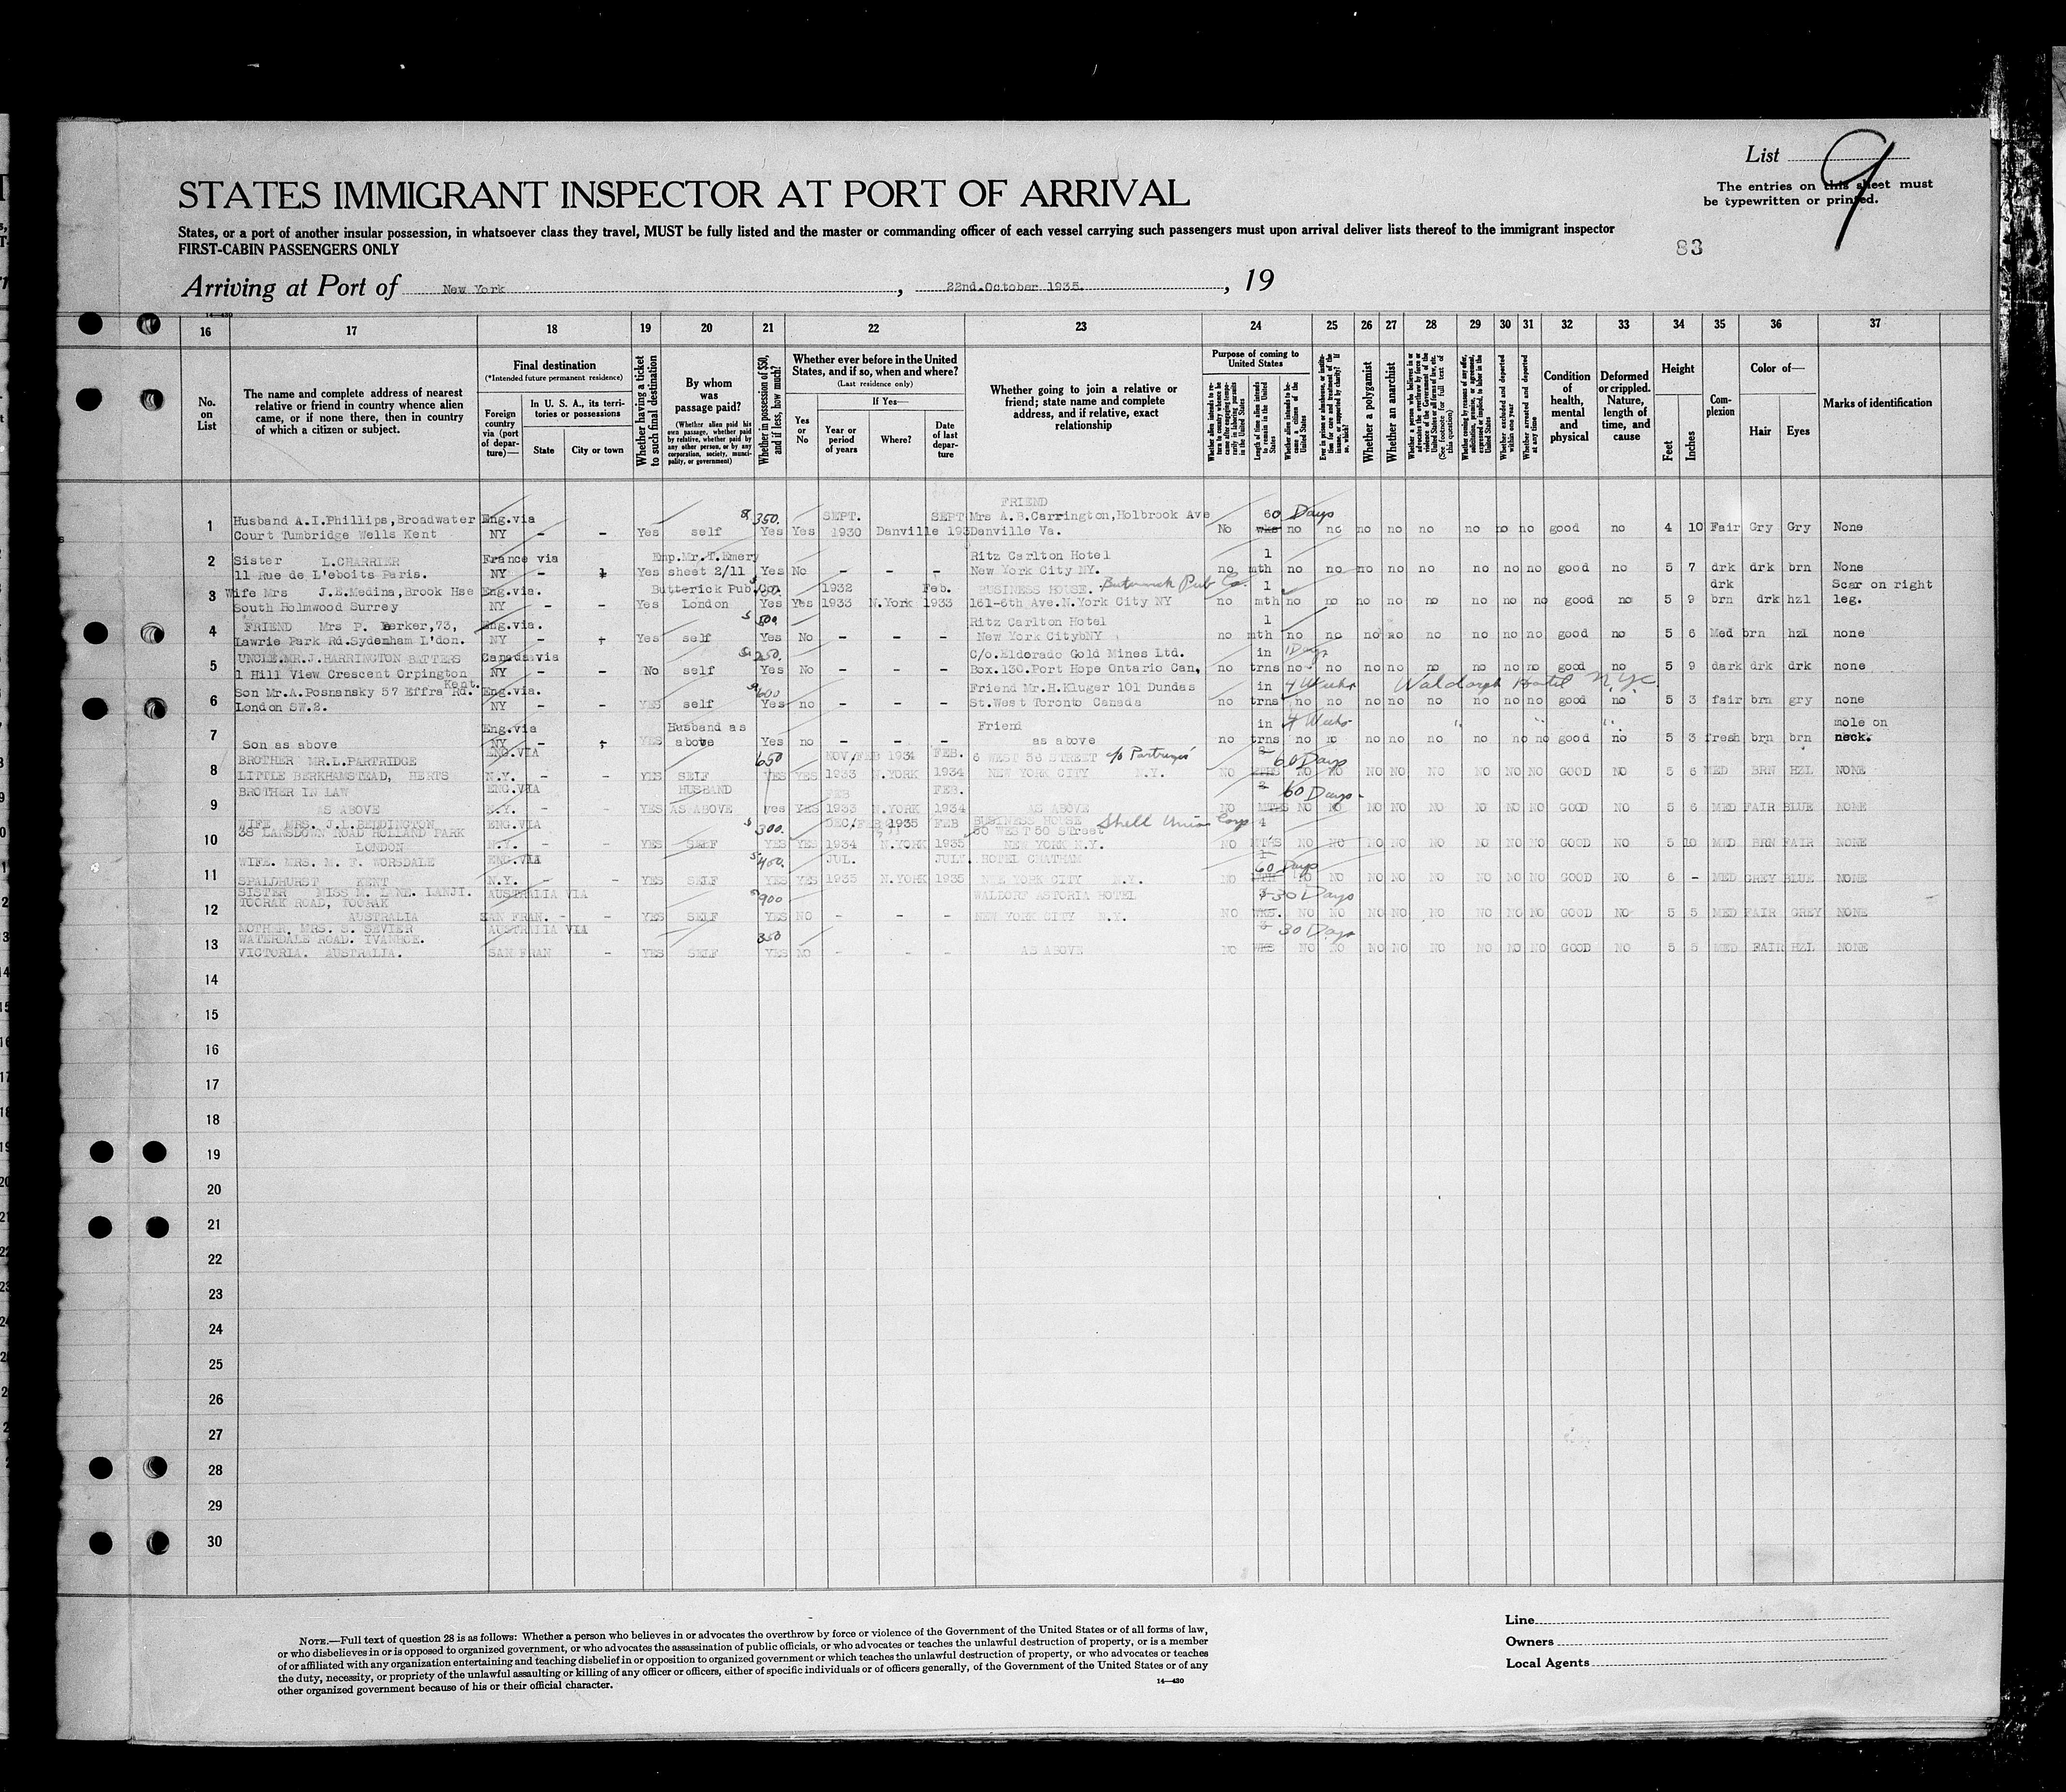 List 9
STATES IMMIGRANT INSPECTOR AT PORT OF ARRIVAL
The entries on this sheet must
be typewritten or printed.
States, or a port of another insular possession, in whatsoever class they travel, MUST be fully listed and the master or commanding officer of each vessel carrying such passengers must upon arrival deliver lists thereof to the immigrant inspector
FIRST-CABIN PASSENGERS ONLY
83
Arriving at Port of New York, 22nd.October 1935., 19
14—430
16 17 18 19 20 21 22 23 24 25 26 27 28 29 30 31 32 33 34 35 36 37
No. on List
The name and complete address of nearest relative or friend in country whence alien came, or if none there, then in country of which a citizen or subject.
Final destination
(*Intended future permanent residence)
Foreign country via (port of departure)—
In U. S. A., its territories or possessions
State
City or town
Whether having a ticket to such final destination
By whom was passage paid?
(Whether alien paid his own passage, whether paid by relative, whether paid by any other person, or by any corporation, society, municipality, or government)
Whether in possession of $50, and if less, how much?
Whether ever before in the United States, and if so, when and where?
(Last residence only)
Yes or No
If Yes—
Year or period of years
Where?
Date of last departure
Whether going to join a relative or friend; state name and complete address, and if relative, exact relationship
Purpose of coming to United States
Whether alien intends to return to country whence he came after engaging temporarily in laboring pursuits in the United States
Length of time alien intends to remain in the United States
Whether alien intends to become a citizen of the United States
Ever in prison or almshouse, or institution for care and treatment of the insane, or supported by charity? If so, which?
Whether a polygamist
Whether an anarchist
Whether a person who believes in or advocates the overthrow by force or violence of the Government of the United States or all forms of law, etc. (See footnote for full text of this question)
Whether coming by reason of any offer, solicitation, promise, or agreement, expressed or implied, to labor in the United States
Whether excluded and deported within one year
Whether arrested and deported at any time
Condition of health, mental and physical
Deformed or crippled. Nature, length of time, and cause
Height
Feet
Inches
Complexion
Color of—
Hair
Eyes
Marks of identification
FRIEND
1 Husband A.I.Phillips,Broadwater Eng.via $350. SEPT. SEPT Mrs A.B.Carrington,Holbrook Ave 60 Days
Court Tumbridge Wells Kent NY - - Yes self Yes Yes 1930 Danville 193 Danville Va. No wks no no no no no no no no good no 4 10 Fair Gry Gry None
2 Sister L.CHARRIER France via Emp.Mr.T.Emery Ritz Carlton Hotel 1
11 Rue de L'eboits Paris. NY - Yes sheet 2/11 Yes No - - - New York City NY. no mth no no no no no no no no good no 5 7 drk drk brn None
3 Wife Mrs J.E.Medina,Brook Hse Eng.via. Butterick Pub.Co. 1932 Feb. BUSINESS HOUSE. Butterick Pub Co. 1 drk Scar on right
South Holmwood Surrey NY - - Yes London Yes Yes 1933 N.York 1933 161-6th Ave.N.York City NY no mth no no no no no no no no good no 5 9 brn drk hzl leg.
4 FRIEND Mrs P. Parker,73, Eng.via. $500. Ritz Carlton Hotel 1
Lawrie Park Rd.Sydenham L'don. NY - Yes self Yes No - - - New York CitybNY no mth no no no no no no no no good no 5 6 Med brn hzl none
5 UNCLE.MR.J.HARRINGTON BETTERS Canada via $250. C/o.Eldorado Gold Mines Ltd. in 1 Days
1 Hill View Crescent Orpington Kent. NY - - No self Yes No - - - Box.130.Port Hope Ontario Can, no trns no no no no no no no no good no 5 9 dark drk drk none
6 Son Mr.A.Posnansky 57 Effra Rd. Eng.via. $600 Friend Mr.H.Kluger 101 Dundas in 4 Weeks Waldorph Hotel N.Y.C.
London SW.2. NY - - YES self Yes no - - - St.West Toronto Canada no trns no no no no no no no no good no 5 3 fair brn gry none
7 Eng.via Husband as Friend in 4 Weeks mole on
Son as above NY - YES above Yes no - - - as above no trns no no no no no no no no good no 5 3 fresh brn brn neck.
8 BROTHER MR.L.PARTRIDGE ENG.VIA 650 NOV/FEB 1934 FEB. 6 WEST 56 STREET c/o Partridge 60 Days
LITTLE BERKHAMSTEAD, HERTS N.Y. - - YES SELF YES YES 1933 N.YORK 1934 NEW YORK CITY N.Y. NO MTHS NO NO NO NO NO NO NO NO GOOD NO 5 6 MED BRN HZL NONE
9 BROTHER IN LAW ENG.VIA HUSBAND FEB FEB. 60 Days
AS ABOVE N.Y. - - YES AS ABOVE yes YES 1933 N.YORK 1934 AS ABOVE NO MTHS NO NO NO NO NO NO NO NO GOOD NO 5 6 MED FAIR BLUE NONE
10 WIFE MRS. J.L.BEDDINGTON ENG.VIA $300. DEC/FEB 1935 FEB BUSINESS HOUSE Shell Union Corp 4
35 LANSDOWN ROAD HOLLAND PARK 50 WEST 50 STreet
LONDON N.Y. - - YES SELF YES YES 1934 N.YORK 1935 NEW YORK N.Y. NO MTHS NO NO NO NO NO NO NO NO GOOD NO 5 10 MED BRN FAIR NONE
11 WIFE. MRS. M. F. WORSDALE ENG.VIA $400. JUL. JULY. HOTEL CHATHAM 60 Days
SPALDHURST KENT N.Y. - - YES SELF YES YES 1935 N.YORK 1935 NEW YORK CITY N.Y. NO MTH NO NO NO NO NO NO NO NO GOOD NO 6 - MED GREY BLUE NONE
12 SISTER MISS M. LANE. LANJI. AUSTRALIA VIA $900 WALDORF ASTORIA HOTEL 30 Days
TOORAK ROAD, TOORAK
AUSTRALIA SAN FRAN. - - YES SELF YES NO - - - NEW YORK CITY N.Y. NO WKS. NO NO NO NO NO NO NO NO GOOD NO 5 5 MED FAIR GREY NONE
13 MOTHER. MRS. S. SEVIER AUSTRALIA VIA 350 30 Days
WATERDALE ROAD. IVANHOE.
VICTORIA. AUSTRALIA. SAN FRAN - YES SELF YES NO - - - AS ABOVE NO WKS NO NO NO NO NO NO NO NO GOOD NO 5 5 MED FAIR HZL NONE
14
15
16
17
18
19
20
21
22
23
24
25
26
27
28
29
30
NOTE.—Full text of question 28 is as follows: Whether a person who believes in or advocates the overthrow by force or violence of the Government of the United States or of all forms of law,
or who disbelieves in or is opposed to organized government, or who advocates the assassination of public officials, or who advocates or teaches the unlawful destruction of property, or is a member
of or affiliated with any organization entertaining and teaching disbelief in or opposition to organized government or which teaches the unlawful destruction of property, or who advocates or teaches
the duty, necessity, or propriety of the unlawful assaulting or killing of any officer or officers, either of specific individuals or of officers generally, of the Government of the United States or of any
other organized government because of his or their official character.
14—430
Line
Owners
Local Agents